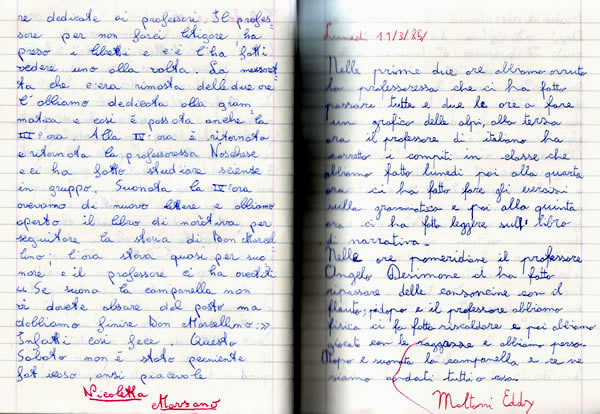 re dedicate ai professori. Il profes-
sore per non farci litigare ha
preso i libretti e ce l'ha fatti
vedere uno alla volta. La mezzoret
ta che c'era rimasta delle due ore
l'abbiamo dedicata alla gram_
matica e così è passata anche la
III° ora. Alla IV° ora è ritornata
e ritornata la professoressa Noschese
e ci ha fatto studiare scienze
in gruppo. Suonata la IV°ora
avevamo di nuovo lettere e abbiamo
aperto il libro di narrativa per
seguitare la storia di Don Marcel
lino; l'ora stava quasi per suo
nare e il professore ci ha
Se suona la campanella non
vi dovete alzare dal posto ma
dobbiamo finire Don Marcellino:>>
Infatti così fece. Questo
Sabato non è stato
faticoso, anzi piacevole
Nicoletta
Marzano
Lunedì 11/3/85/
Nelle prime due ore abbiamo avuto
la professoressa che ci ha fatto
passare tutte e due le ore a fare
un grafico delle alpi, alla terza
ora il professore di italiano ha
corretto i compiti in classe che
abbiamo fatto lunedì poi alla quarta
ora ci ha fatto fare gli
sulla grammatica e poi alla quinta
ora ci ha fatto leggere sul libro
di narrativa.
Nelle ore pomeridiane il professore
Angelo Desimone ci ha fatto
ripassare delle canzoncine con il
flauto; dopo e il professore abbiamo
fisica ci fa fatto riscaldare e poi abbiamo
giocato con le ragazze e abbiamo perso.
Dopo e suonata la campanella e ce ne
siamo andati tutti a casa.
Moltoni Eddy